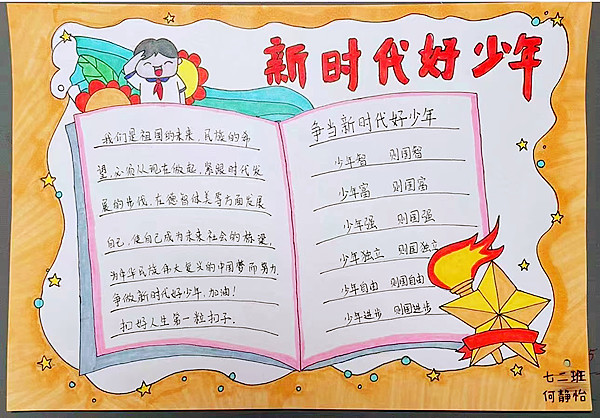 新时代好少年
我们是祖国的未来,民族的希
望,必须从现在做起,紧跟时代发
展的步伐,在德智体美等方面发展
自己,使自己成为未来社会的栋梁,
为中华民族伟大复兴的中国梦而努力,
争做新时代好少年,加油!
扣好人生第一粒扣子.
争当新时代好少年
少年智 则国智
少年富 则国富
少年强 则国强
少年独立 则国独立
少年自由 则国自由
少年进步 则国进步
七二班
何静怡